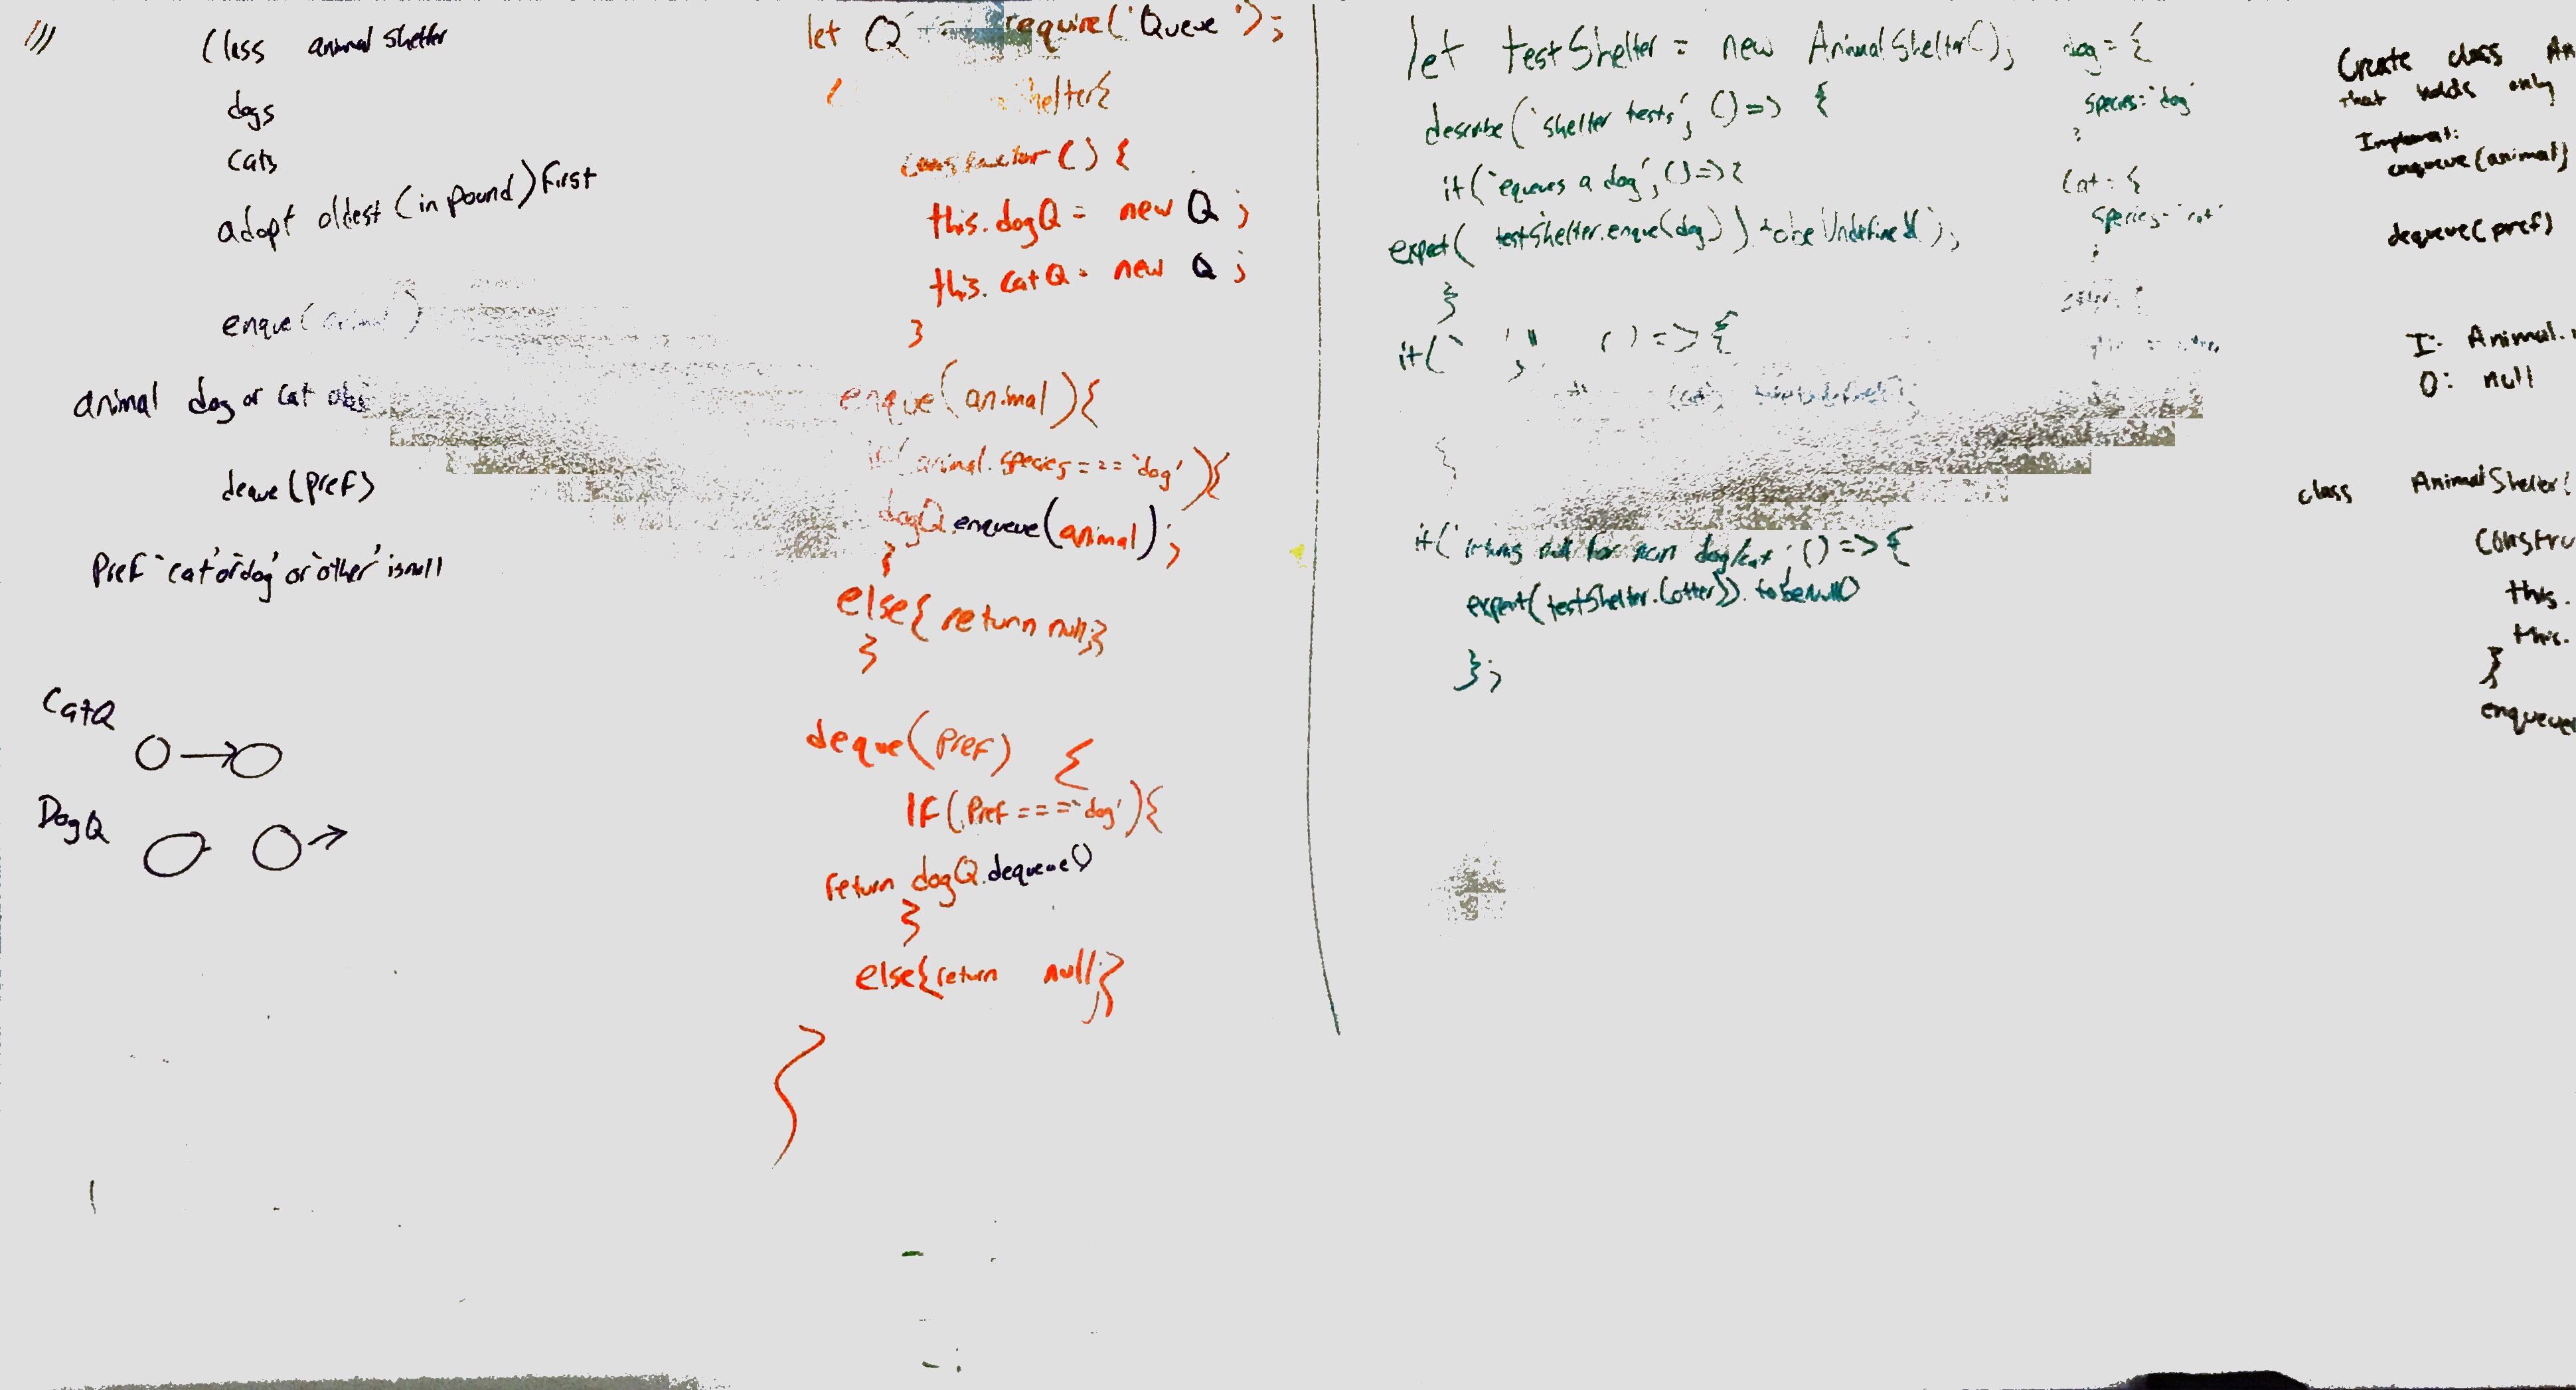 Class animal Shelter
dogs
cats
adopt oldest (in pound) first
enque(animal)
animal dog or cat obj
deque(pref)
Pref `cat' or `dog' or `other' is null
CatQ
DogQ
let Q = require('Queue');
Shelter{
constructor () {
this.dogQ = new Q ;
this.catQ = new Q ;
}
enque(animal){
if(animal.species === `dog'){
dogQ.enqueue(animal);
}
else{ return null;}
}
deque(pref) {
IF(Pref === `dog'){
return dogQ.dequeue()
}
else{return null;}
}
let testShelter = new AnimalShelter();
describe(`shelter tests', () => {
it(`eques a dog', () => {
expect( testShelter.enque(dog)).tobeUndefined();
}
it(` ', () => {
(cat)
}
it(` returns null for non dog/cat', () => {
expect(testShelter.(otter)).tobenull()
};
dog = {
species: `dog'
}
Cat = {
species: `cat'
}
Create class An
that holds only
Implement:
enqueue(animal)
dequeue(pref)
I: Animal.
O: null
class AnimalShelter{
Constru
this.
this.
}
enqueue